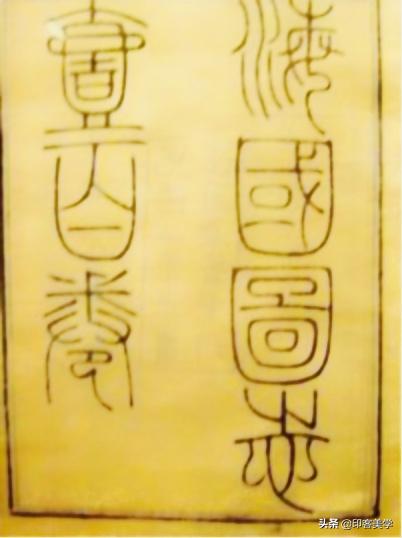 海國圖志
壹百卷
头条 @印客美学